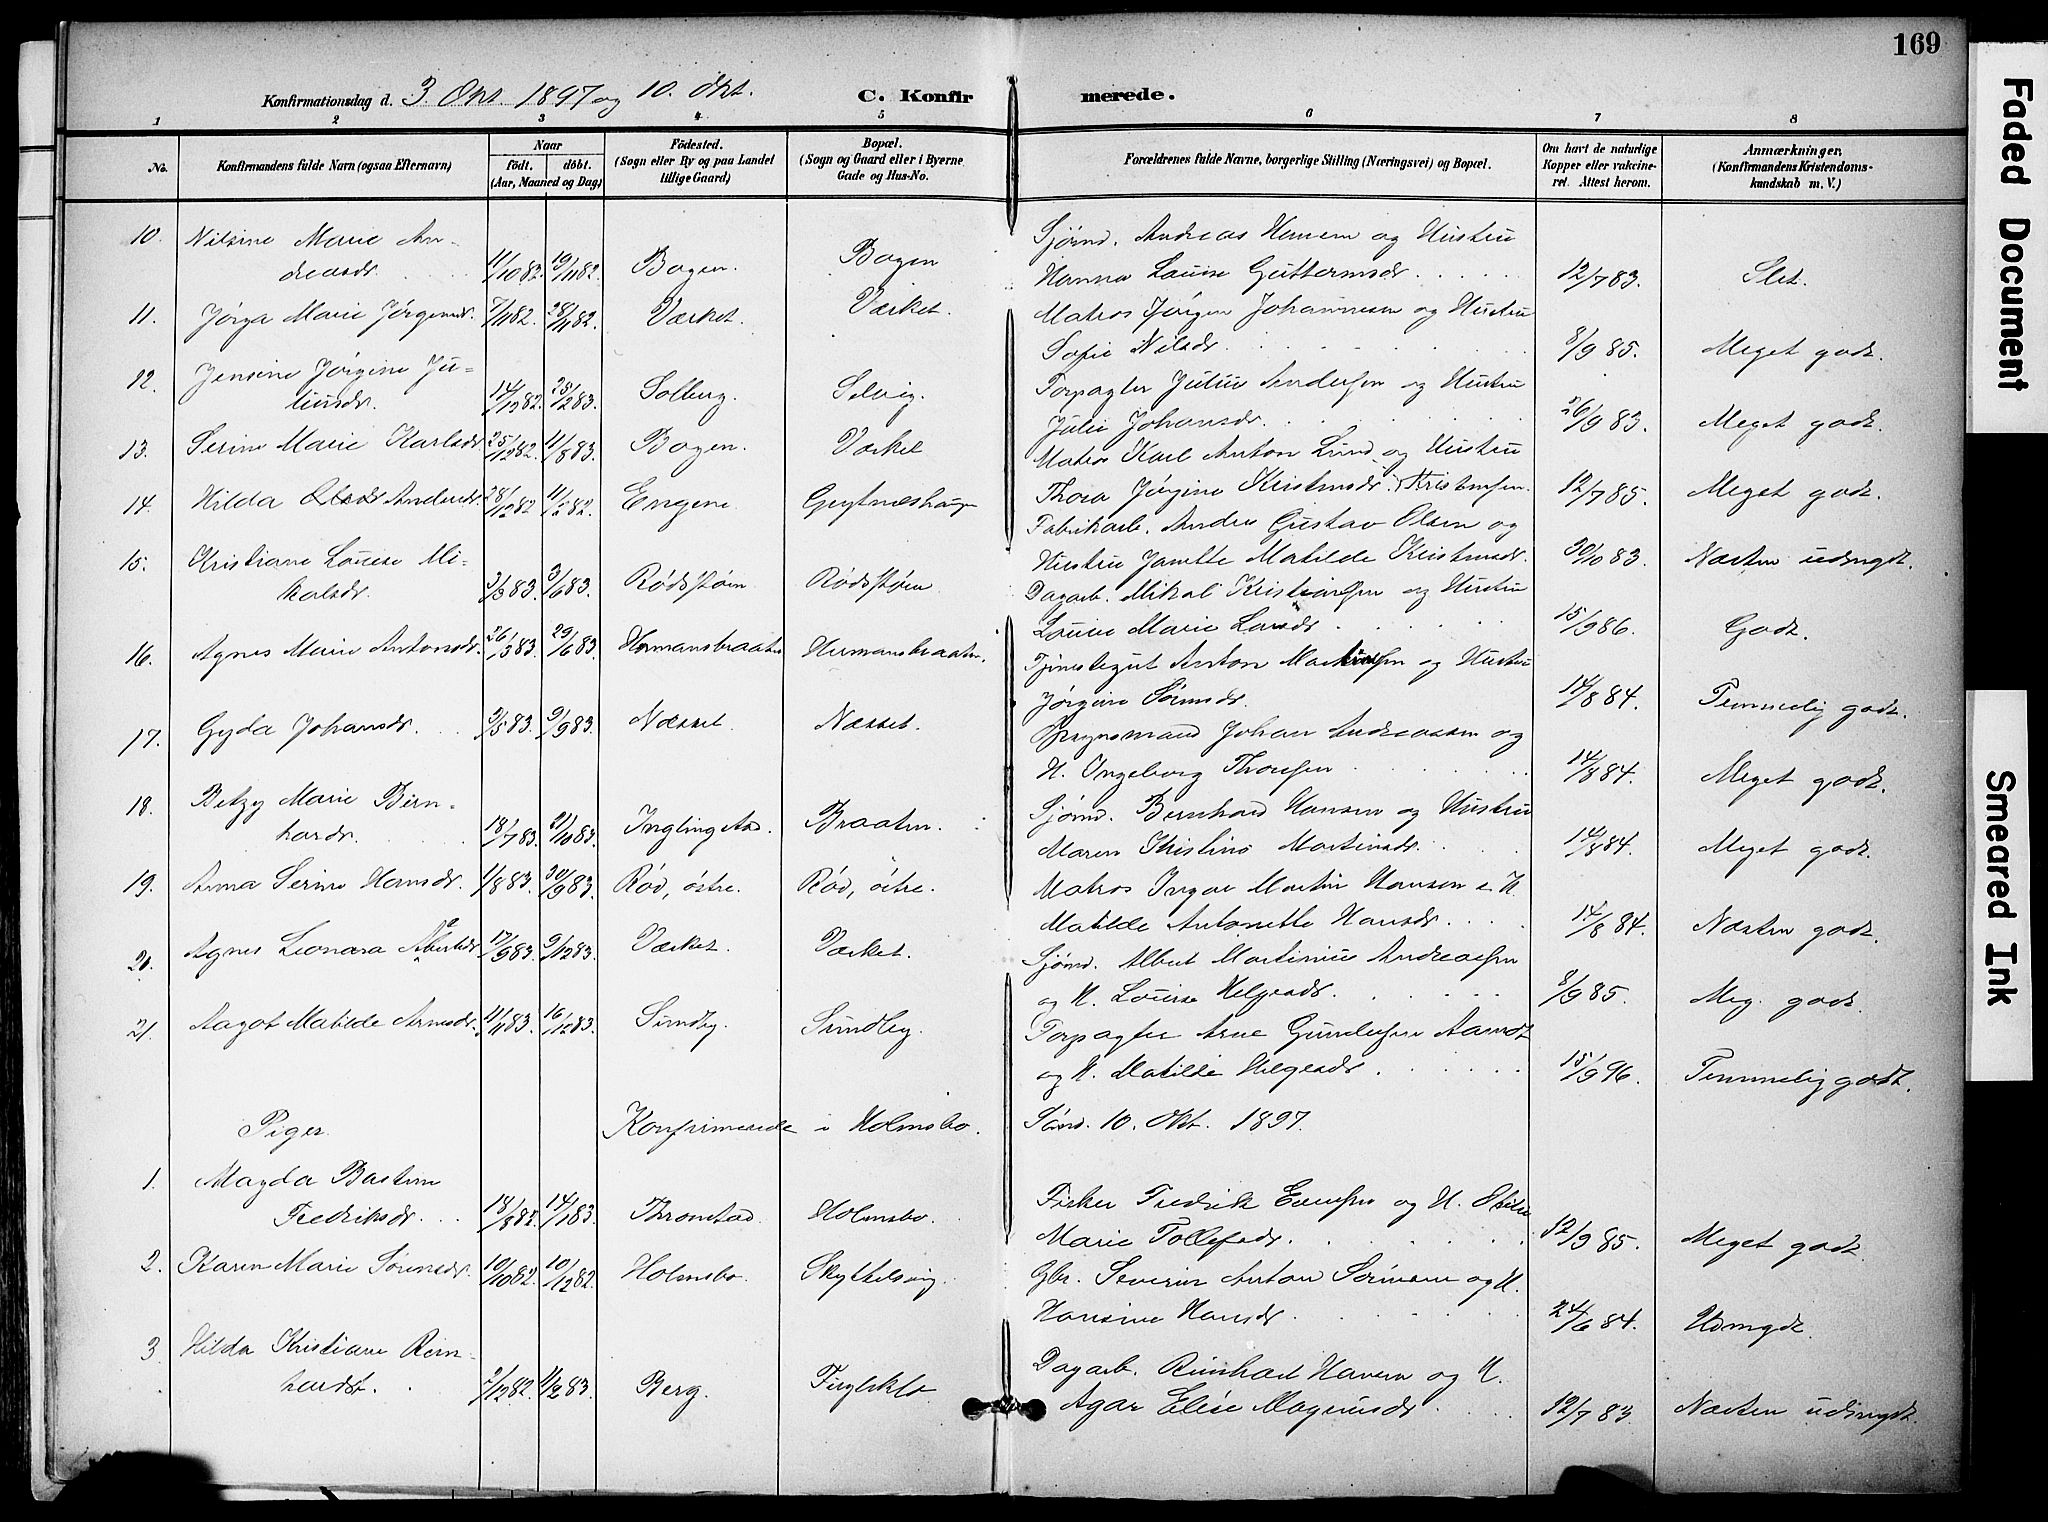 169
Konfirmationsdag d. 3. Okt. 1897 og 10. Okt. C. Konfirmerede.
1 2 3 4 5 6 7 8
No. Konfirmandens fulde Navn (ogsaa Efternavn) Naar födt. döbt. (Aar, Maaned og Dag) Födested. (Sogn eller By og paa Landet tillige Gaard) Bopæl. (Sogn og Gaard eller i Byerne Gade og Hus-No. Forældrenes fulde Navne, borgerlige Stilling (Næringsvei) og Bopæl. Om havt de naturlige Kopper eller vakcineret. Attest herom. Anmærkninger, (Konfirmandens Kristendomskundskab m. V.)
10. Nilsine Marie An- Sjømd. Andreas Hansen og Hustru
dreasdr. 11/10 82. 19/11 82. Bogen. Bogen Hanna Louise Guttormsdr. 12/7 83. Slet.
11. Jørga Marie Jørgensdr. 7/11 82. 28/11 82. Værket. Værket. Matros Jørgen Johannesen og Hustru
Sofie Nilsdr. 8/9 85. Meget godt.
12. Jensine Jørgine Ju- Torpagter Julius Andersen og Hustru
liusdr. 14/12 82. 25/2 83. Solberg. Selvig. Julie Johansdr. 26/9 83. Meget godt.
13. Serine Marie Karlsdr 25/12 82. 11/8 83. Bogen. Værket Matros Karl Anton Lund og Hustru
Thora Jørgine Kristensdr. Kristensen. 12/7 85. Meget godt.
14. Hilda Olsdr Andersdr. 28/12 82 11/2 82. Engene. Fabrikarb. Anders Gustav Olsen og
Hustru Janette Matilde Kristensdr. 30/10 83. Næsten udmgdt.
15. Kristiane Louise Mi- Dagarb. Mikal Kristiansen og Hustru
kalsdr. 3/3 83. 3/6 83. Rødsstøen Rødsstøen Louise Marie Larsdr. 15/9 86. Godt.
16. Agnes Marie Antonsdr. 26/3 83. 29/6 83. Hermansbraaten Hermansbraaten. Tjenestegut Anton Martinsen og Hustru
Jørgine Sørensdr. 14/8 84. Temmelig godt.
17. Gyda Johansdr. 2/5 83. 2/9 83. Næsset. Næsset. Opsynsmand Johan Andreassen og
H. Ingeborg Thoresen 14/8 84. Meget godt.
18. Betzy Marie Bern- Sjømd. Bernhard Hansen og Hustru
hardr. 18/7 83. 21/10 83. Inglingstad. Braaten. Maren Kristine Martinsdr. 14/8 84. Meget godt.
19. Anna Serine Hansdr. 1/8 83. 30/9 83. Rød, östre. Rød, östre. Matros Ingar Martin Hansen & H.
Matilde Antonette Hansdr. 14/8 84. Næsten godt.
20. Agnes Leonora Albertsdr 17/9 83. 9/12 83. Værket. Værket. Sjømd. Albert Martinius Andreassen
og H. Louise Helgesdr. 8/9 85. Meg. godt.
21. Aagot Matilde Arnesdr. 11/11 83. 16/12 83. Sundby. Sundby. Torpagter Arne Gundersen Aasrødt
og H. Matilde Helgesdr. 15/9 96. Temmelig godt.
Piger. Konfirmerede i Holmsbo. Sönd. 10. Okt. 1897.
1. Magda Bastine Fisker Fredrik Evensen og H.
Fredriksdr. 18/8 82. 14/1 83. Thronstad. Holmsbo. Marie Tollefsdr. 12/9 85. Meget godt.
2. Karen Marie Sörensdr. 10/10 82. 10/12 82. Holmsbo. Gbr. Severin Anton Sörensen og H.
Hansine Hansdr. 24/6 84. Udmgdt.
3. Hilda Kristiane Rein- Dagarb. Reinhard Hansen og H.
hardst. 2/12 82. 1/2 83. Berg. Agar Elise Magnusdr. 12/7 83. Næsten udmgdt.
Faded Document
Smeared Ink